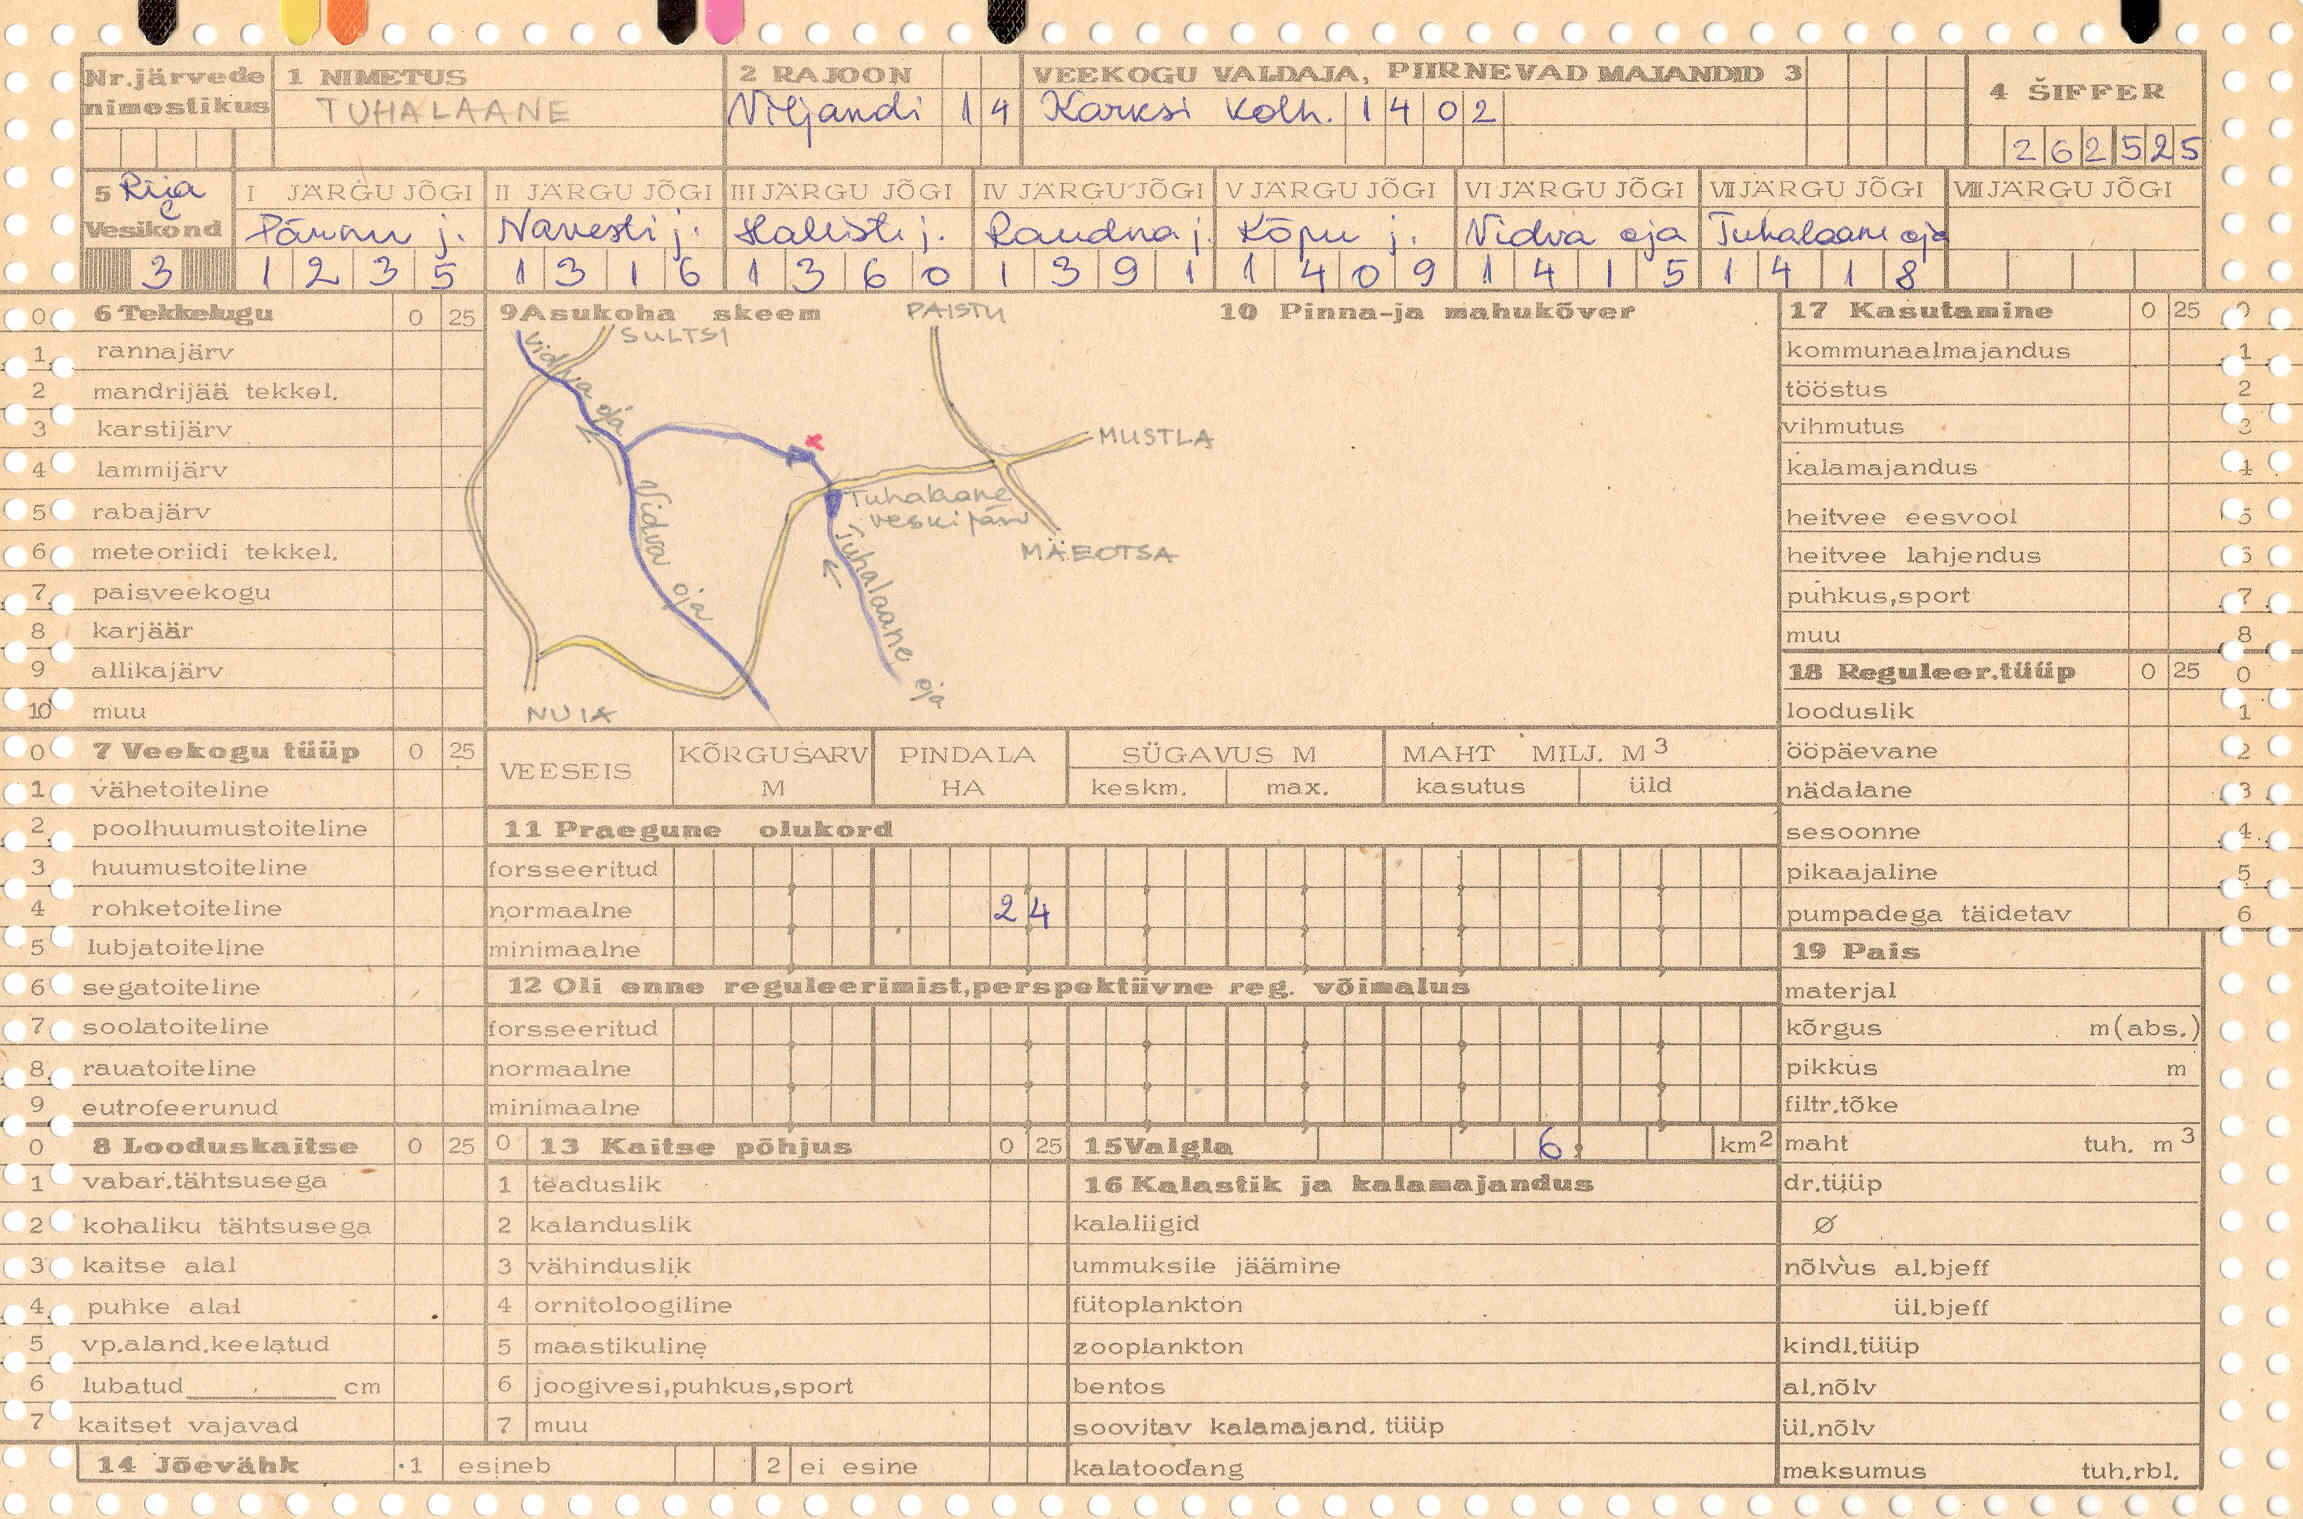 Nr.järvede nimestikus
1 NIMETUS
TUHALAANE
2 RAJOON
Viljandi 1 4
VEEKOGU VALDAJA, PIIRNEVAD MAJANDID 3
Karksi kolh. 1 4 0 2
4 ŠIFFER
2 6 2 5 2 5
5 Riia
Vesikond
3
I JÄRGU JÕGI
Pärnu j.
1 2 3 5
II JÄRGU JÕGI
Navesti j.
1 3 1 6
III JÄRGU JÕGI
Halliste j.
1 3 6 0
IV JÄRGU JÕGI
Raudna j.
1 3 9 1
V JÄRGU JÕGI
Kõpu j.
1 4 0 9
VI JÄRGU JÕGI
Vidva oja
1 4 1 5
VII JÄRGU JÕGI
Tuhalaane oja
1 4 1 8
VIII JÄRGU JÕGI
0 6 Tekkelugu 0 25
1 rannajärv
2 mandrijää tekkel.
3 karstijärv
4 lammijärv
5 rabajärv
6 meteoriidi tekkel.
7 paisveekogu
8 karjäär
9 allikajärv
10 muu
0 7 Veekogu tüüp 0 25
1 vähetoiteline
2 poolhuumustoiteline
3 huumustoiteline
4 rohketoiteline
5 lubjatoiteline
6 segatoiteline
7 soolatoiteline
8 rauatoiteline
9 eutrofeerunud
0 8 Looduskaitse 0 25
1 vabar.tähtsusega
2 kohaliku tähtsusega
3 kaitse alal
4 puhke alal
5 vp.aland.keelatud
6 lubatud cm
7 kaitset vajavad
14 Jõevähk 1 esineb 2 ei esine
9 Asukoha skeem
10 Pinna-ja mahukõver
SULTSI
PAISTU
Vidva oja
MUSTLA
Tuhalaane
veskijärv
MÄEOTSA
Vidva oja
Tuhalaane oja
NUIA
VEESEIS
KÕRGUSARV M
PINDALA HA
SÜGAVUS M
keskm. max.
MAHT MILJ. M3
kasutus üld
11 Praegune olukord
forsseeritud
normaalne 2 4
minimaalne
12 Oli enne reguleerimist,perspektiivne reg. võimalus
forsseeritud
normaalne
minimaalne
0 13 Kaitse põhjus 0 25
1 teaduslik
2 kalanduslik
3 vähinduslik
4 ornitoloogiline
5 maastikuline
6 joogivesi,puhkus,sport
7 muu
15 Valgla 6, km2
16 Kalastik ja kalamajandus
kalaliigid
ummuksile jäämine
fütoplankton
zooplankton
bentos
soovitav kalamajand. tüüp
kalatoodang
17 Kasutamine 0 25 0
kommunaalmajandus 1
tööstus 2
vihmutus 3
kalamajandus 4
heitvee eesvool 5
heitvee lahjendus 6
puhkus,sport 7
muu 8
18 Reguleer.tüüp 0 25 0
looduslik 1
ööpäevane 2
nädalane 3
sesoonne 4
pikaajaline 5
pumpadega täidetav 6
19 Pais
materjal
kõrgus m(abs.)
pikkus m
filtr.tõke
maht tuh. m3
dr.tüüp
Ø
nõlvus al.bjeff
ül.bjeff
kindl.tüüp
al.nõlv
ül.nõlv
maksumus tuh.rbl.